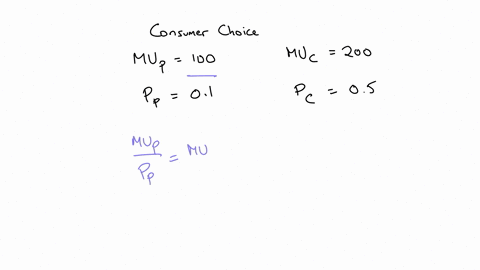 Consumer Choice
MUp = 100 MUc = 200
Pp = 0.1 Pc = 0.5
MUp / Pp = MU